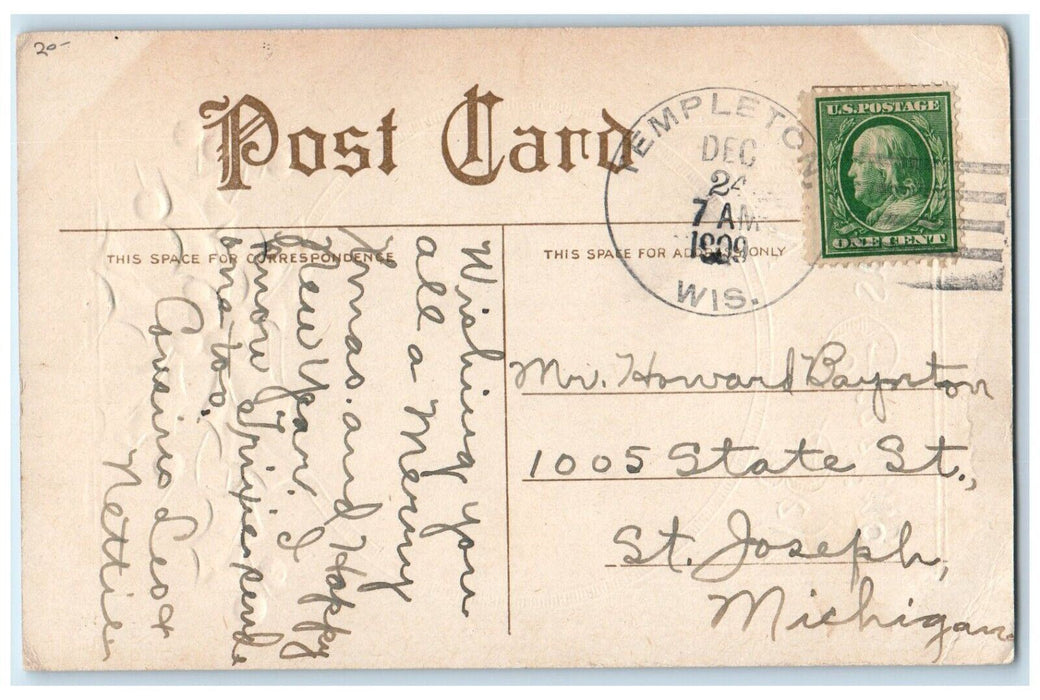 20-
Post Card
TEMPLETON
DEC
24
7 AM
1909
WIS.
U.S. POSTAGE
ONE CENT
THIS SPACE FOR CORRESPONDENCE
THIS SPACE FOR ADDRESS ONLY
Wishing you
all a Merry
Xmas. and Happy
New Year. I
know Trixie send
one too.
Cousins Leo &
Nettie.
Mr. Howard Baynton
1005 State St.,
St. Joseph,
Michigan